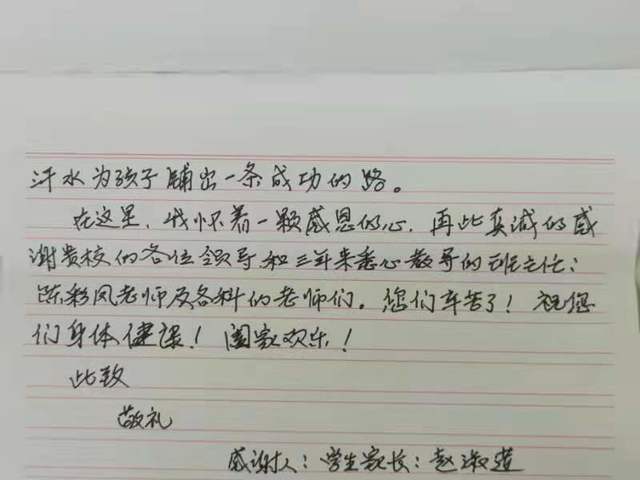 汗水为孩子铺出一条成功的路。
在这里，我怀着一颗感恩的心，再此真诚的感
谢贵校的各位领导和三年来悉心教导的班主任：
陈彩凤老师及各科的老师们。您们辛苦了！祝您
们身体健康！阖家欢乐！
此致
敬礼
感谢人：学生家长：赵淑莲